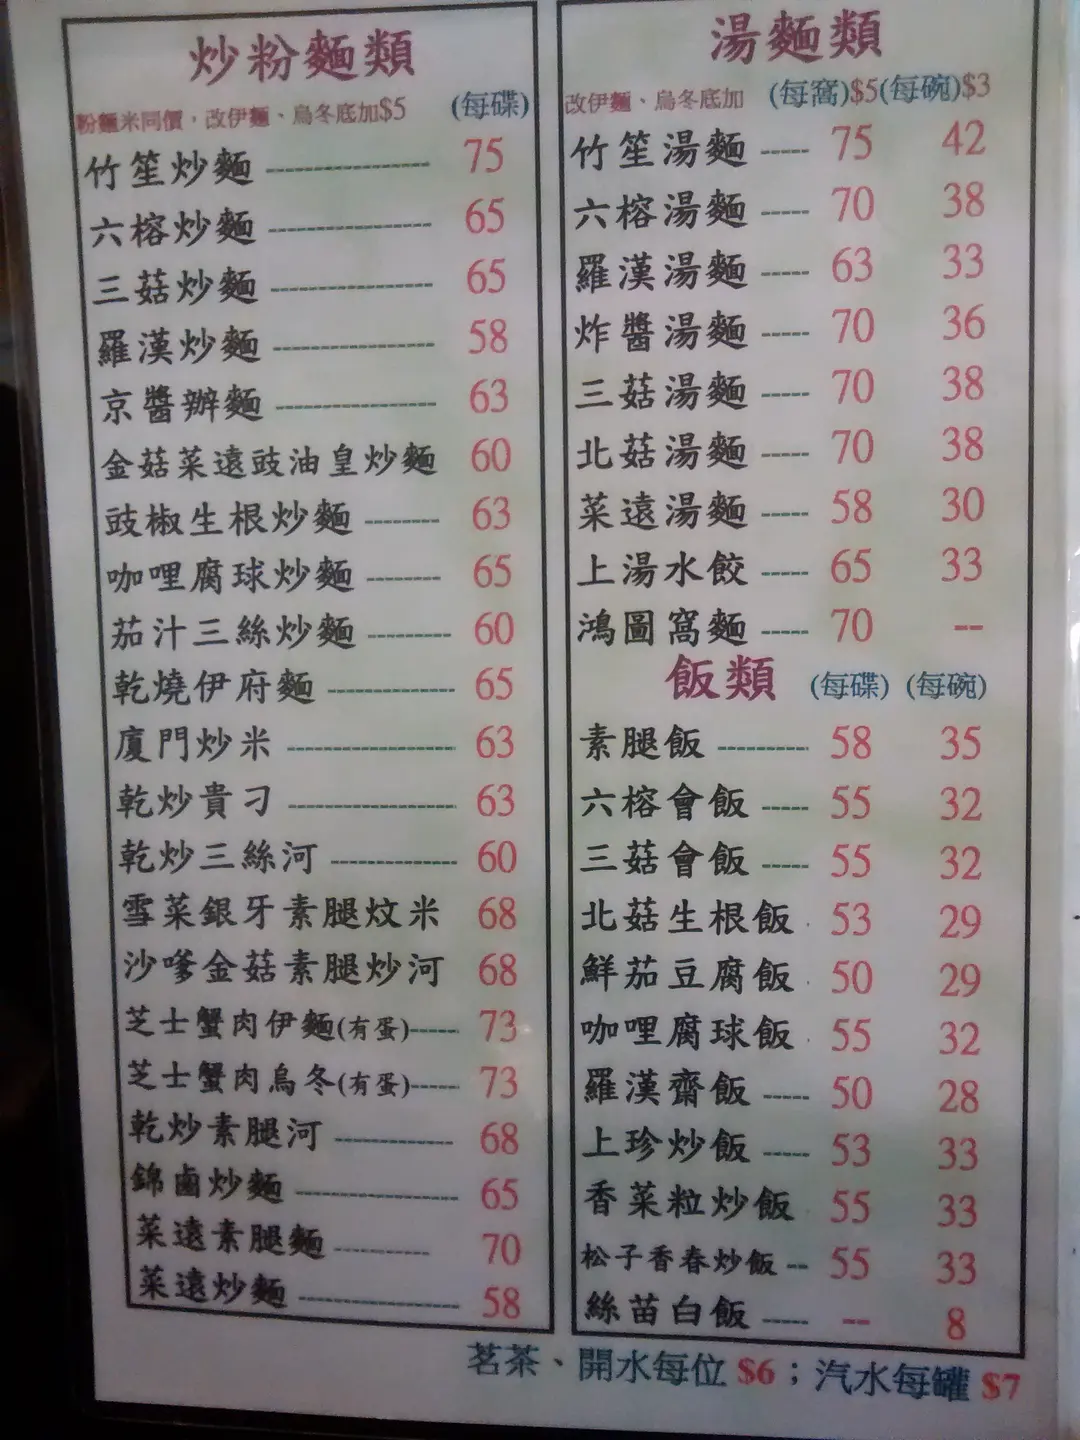 炒粉麵類
粉麵米同價，改伊麵、烏冬底加$5 (每碟)
竹笙炒麵 75
六榕炒麵 65
三菇炒麵 65
羅漢炒麵 58
京醬辦麵 63
金菇菜遠豉油皇炒麵 60
豉椒生根炒麵 63
咖哩腐球炒麵 65
茄汁三絲炒麵 60
乾燒伊府麵 65
廈門炒米 63
乾炒貴刁 63
乾炒三絲河 60
雪菜銀牙素腿炆米 68
沙嗲金菇素腿炒河 68
芝士蟹肉伊麵(有蛋) 73
芝士蟹肉烏冬(有蛋) 73
乾炒素腿河 68
錦鹵炒麵 65
菜遠素腿麵 70
菜遠炒麵 58
湯麵類
改伊麵、烏冬底加 (每窩)$5(每碗)$3
竹笙湯麵 75 42
六榕湯麵 70 38
羅漢湯麵 63 33
炸醬湯麵 70 36
三菇湯麵 70 38
北菇湯麵 70 38
菜遠湯麵 58 30
上湯水餃 65 33
鴻圖窩麵 70 --
飯類 (每碟) (每碗)
素腿飯 58 35
六榕會飯 55 32
三菇會飯 55 32
北菇生根飯 53 29
鮮茄豆腐飯 50 29
咖哩腐球飯 55 32
羅漢齋飯 50 28
上珍炒飯 53 33
香菜粒炒飯 55 33
松子香春炒飯 55 33
絲苗白飯 -- 8
茗茶、開水每位 $6；汽水每罐 $7